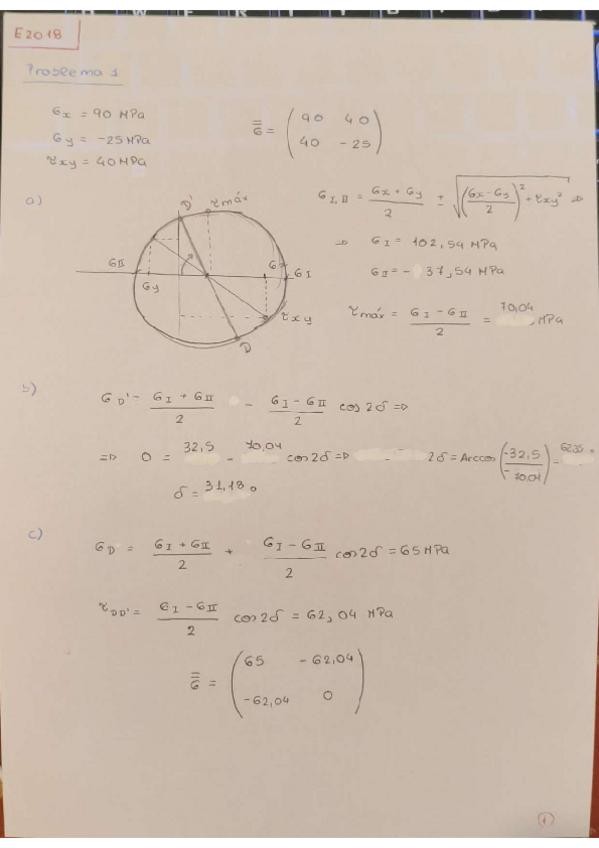 E2018
Problema 1
σx = 90 MPa
σy = -25 MPa
τxy = 40 MPa
σ̿ = (90 40
40 -25)
a)
D' τmáx
σII σy σx σI
τxy
D
σI,II = (σx + σy)/2 ± √(((σx - σy)/2)² + τxy²) ⇒
⇒ σI = 102,54 MPa
σII = - 37,54 MPa
τmáx = (σI - σII)/2 = 70,04 MPa
b)
σD' = (σI + σII)/2 - (σI - σII)/2 cos 2δ ⇒
⇒ 0 = 32,5 - 70,04 cos 2δ ⇒ 2δ = Arccos(-32,5/-70,04) =
δ = 31,18°
c)
σD = (σI + σII)/2 + (σI - σII)/2 cos 2δ = 65 MPa
τDD' = (σI - σII)/2 cos 2δ = 62,04 MPa
σ̿ = (65 -62,04
-62,04 0)
1